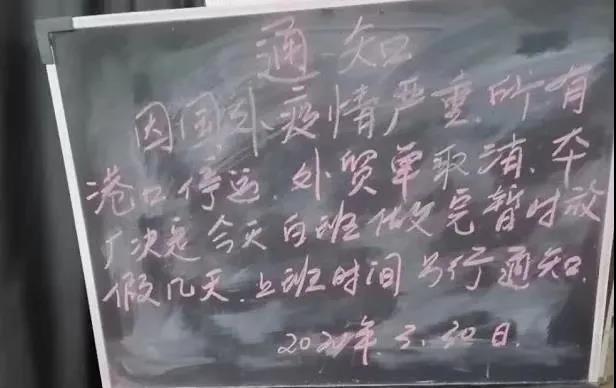 通知
因国外疫情严重,所有
港口停运.外贸单取消.本
厂决定今天白班做完暂时放
假几天.上班时间另行通知.
2020年.3.30日.